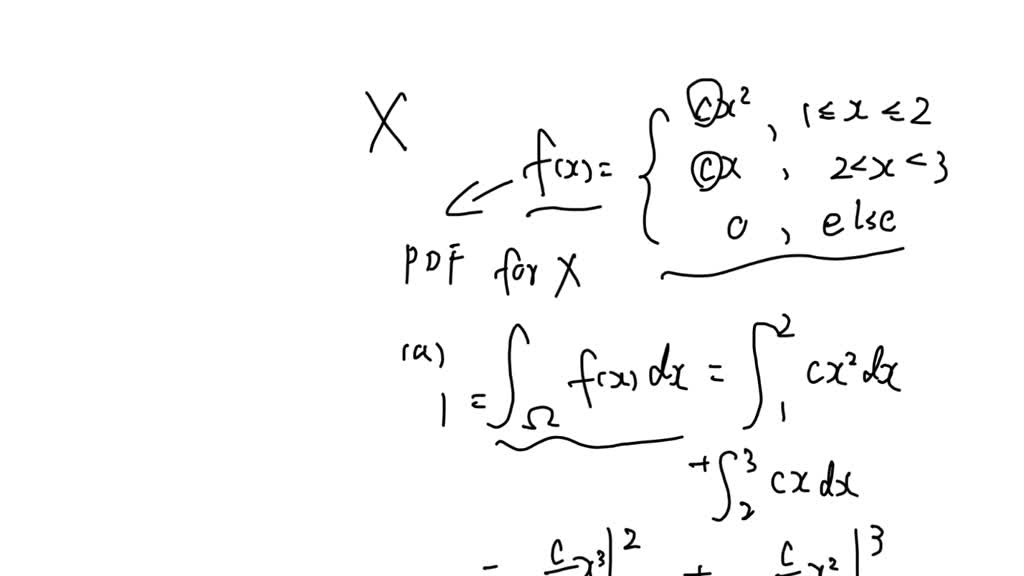 X
f(x) = { cx², 1 ≤ x ≤ 2
cx, 2 < x < 3
0, else
PDF for X
(a)
1 = ∫_Ω f(x) dx = ∫_1^2 cx² dx
+ ∫_2^3 cx dx
= c x³ |² + c x² |³